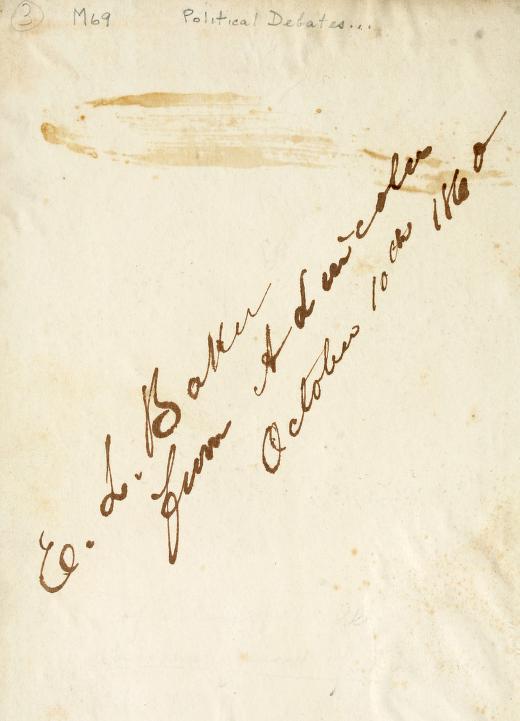 3 M69 Political Debates...
E. L. Baker
from A Lincoln
October 10th 1860